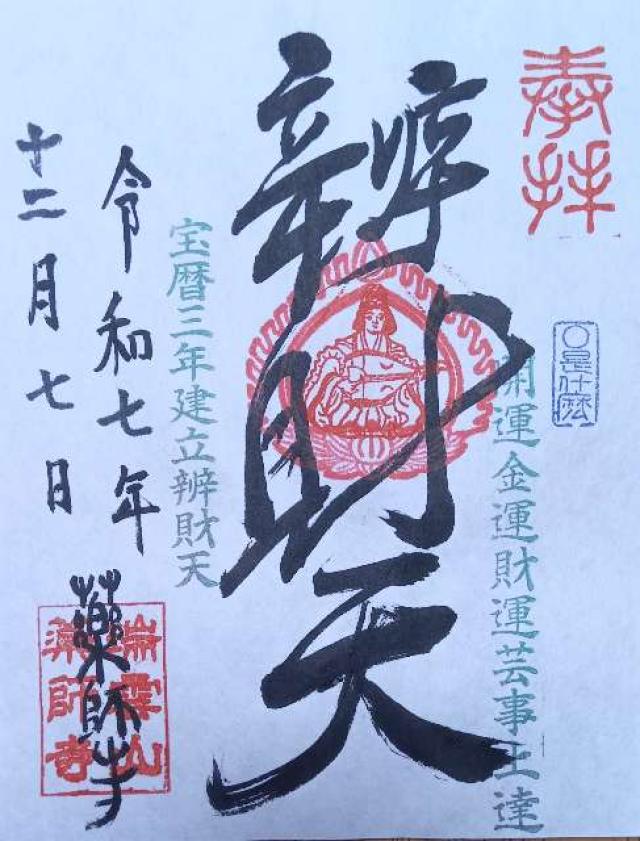 奉拝
〇是什麽
開運金運財運芸事上達
辨財天
宝暦三年建立辨財天
令和七年
十二月七日
藥師寺
瑞雲山
藥師寺